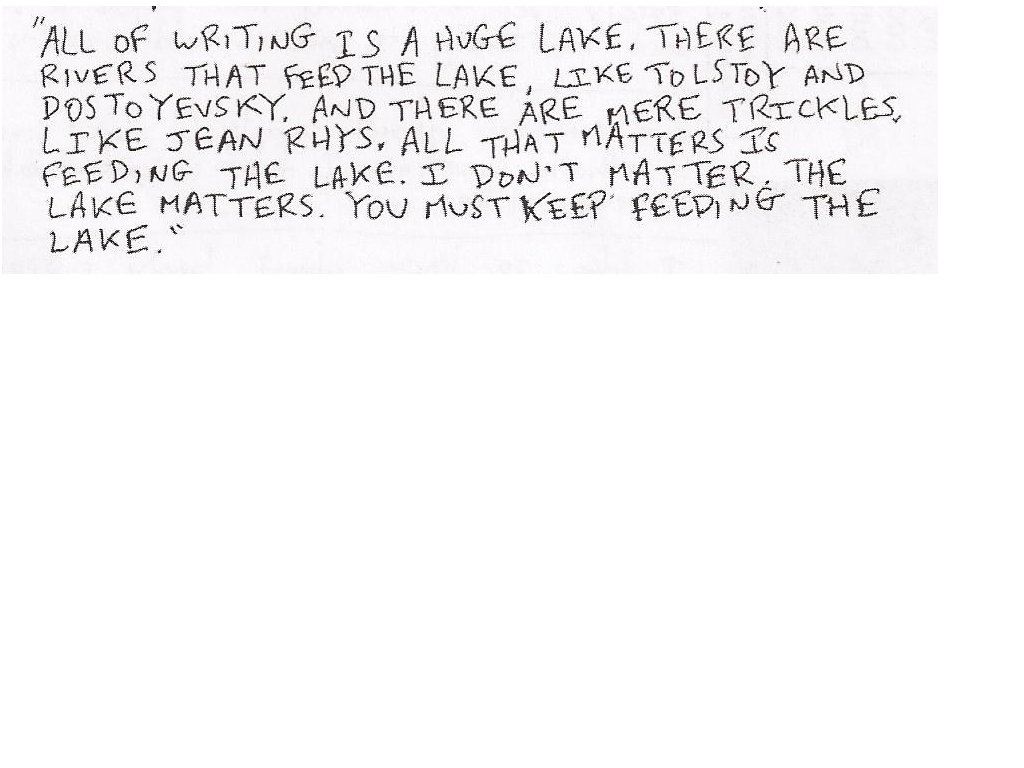 "ALL OF WRITING IS A HUGE LAKE. THERE ARE
RIVERS THAT FEED THE LAKE, LIKE TOLSTOY AND
DOSTOYEVSKY. AND THERE ARE MERE TRICKLES,
LIKE JEAN RHYS. ALL THAT MATTERS IS
FEEDING THE LAKE. I DON'T MATTER. THE
LAKE MATTERS. YOU MUST KEEP FEEDING THE
LAKE."